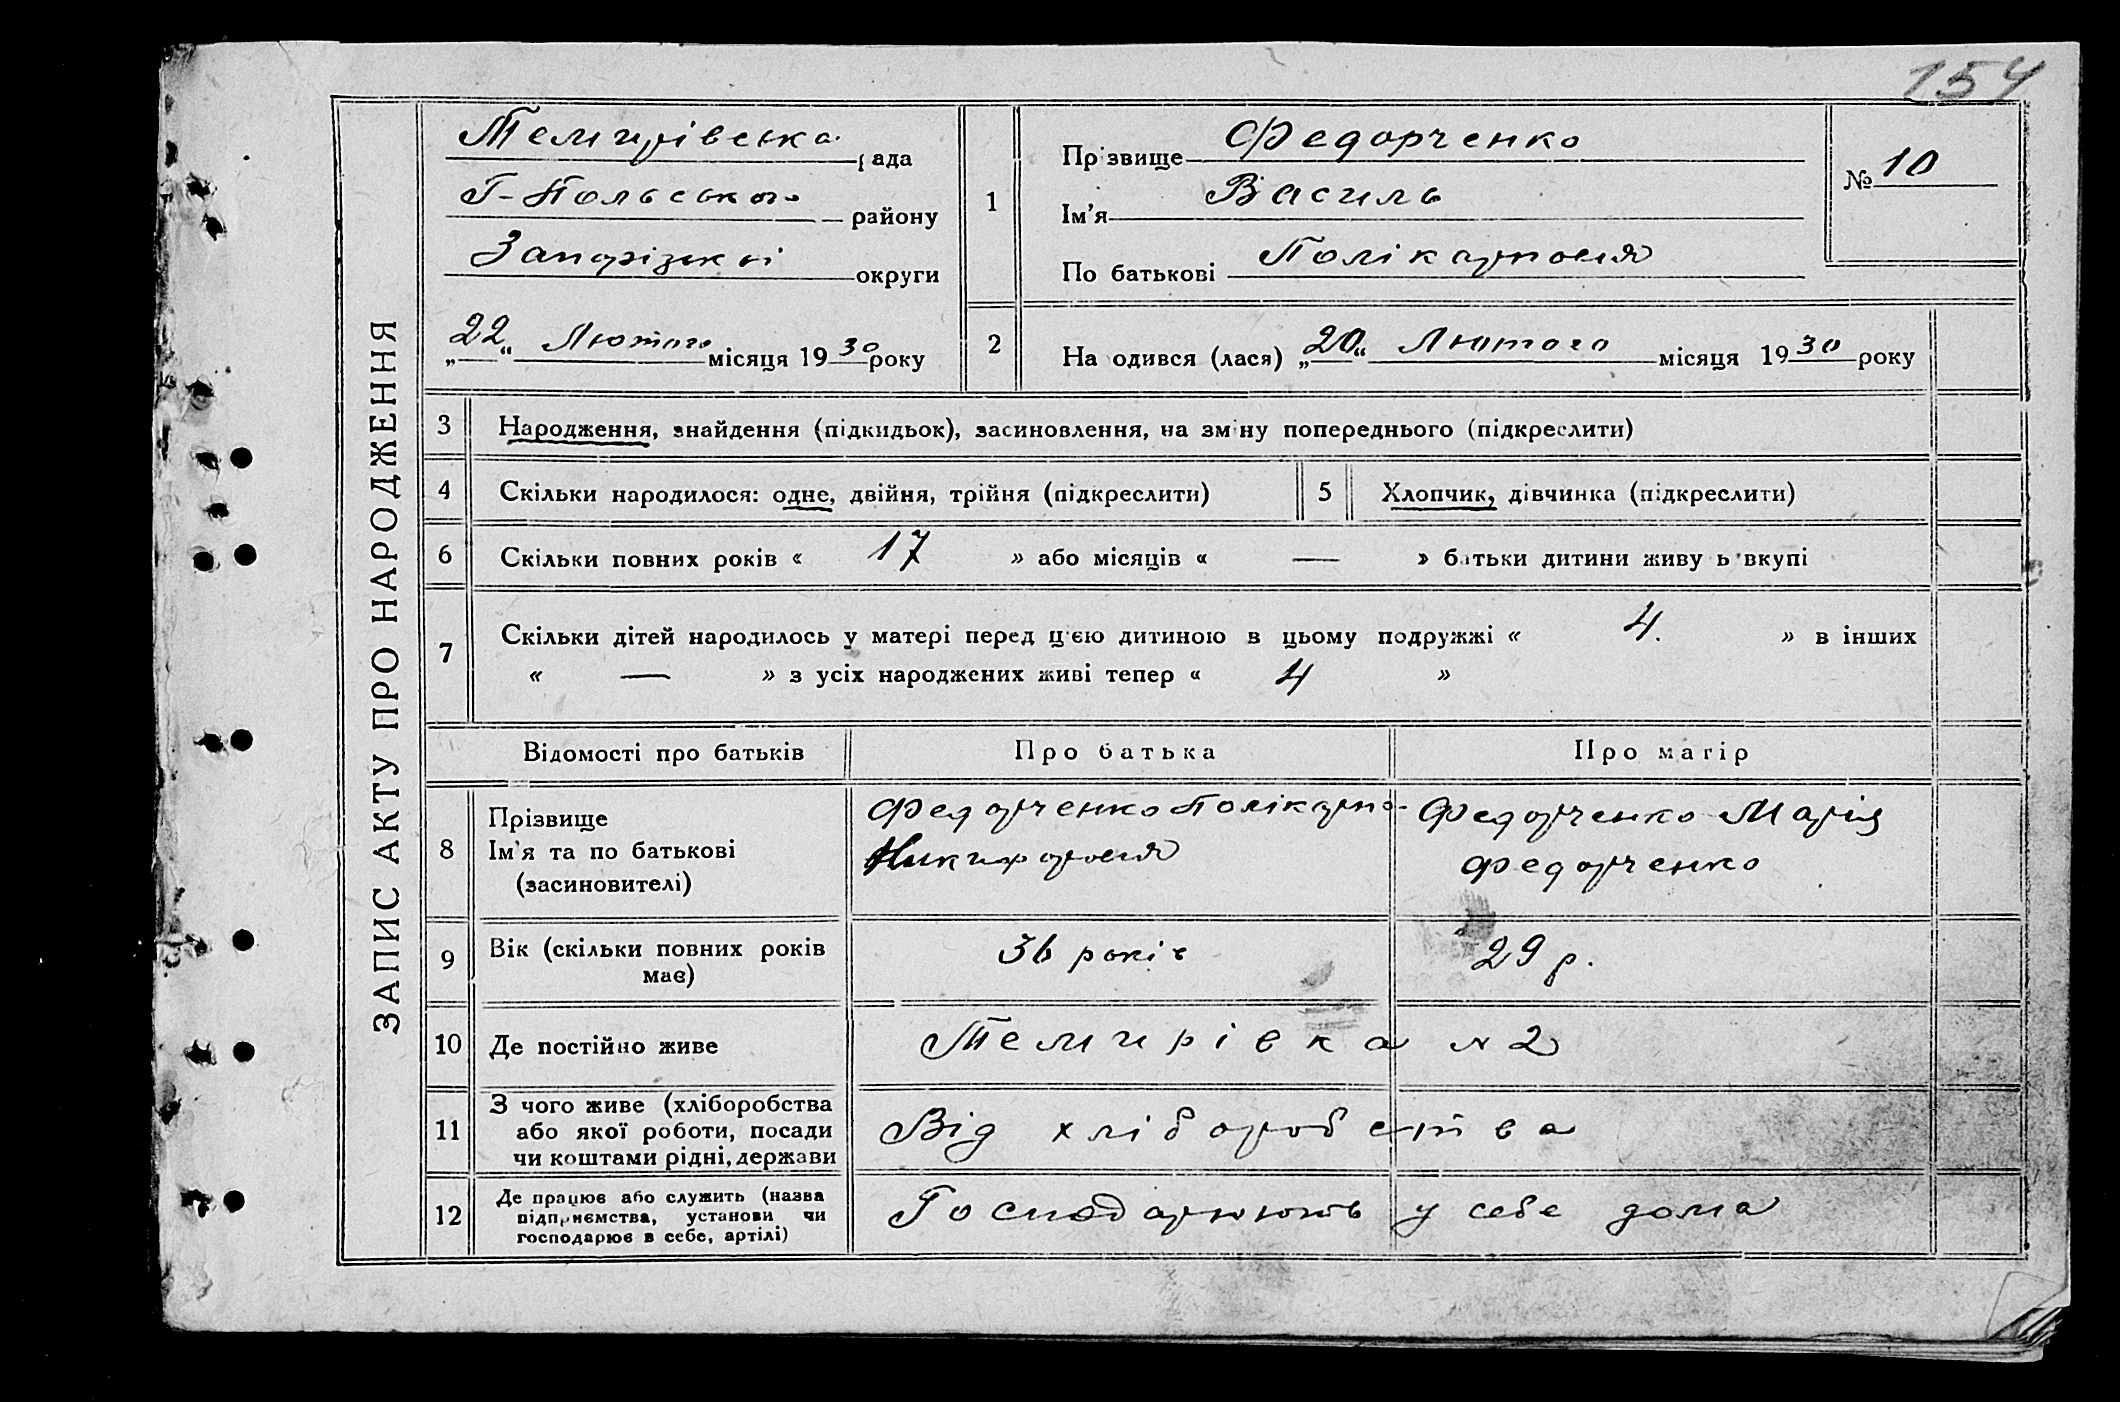 154
ЗАПИС АКТУ ПРО НАРОДЖЕННЯ
Темирівська рада
Г-Польського району
Запорізької округи
„22“ Лютого місяця 1930 року
1
Прізвище Федорченко
Ім’я Василь
По батькові Полікарпович
№ 10
2
На одився (лася) „20“ Лютого місяця 1930 року
3 Народження, знайдення (підкидьок), засиновлення, на зміну попереднього (підкреслити)
4 Скільки народилося: одне, двійня, трійня (підкреслити) 5 Хлопчик, дівчинка (підкреслити)
6 Скільки повних років « 17 » або місяців « — » батьки дитини живуть вкупі
7 Скільки дітей народилось у матері перед цією дитиною в цьому подружжі « 4. » в інших
« — » з усіх народжених живі тепер « 4 »
Відомості про батьків Про батька Про матір
8 Прізвище
Ім’я та по батькові
(засиновителі)
Федорченко Полікарпо-
Никифорович
Федорченко Марія
Федорченко
9 Вік (скільки повних років
має)
36 років 29 р.
10 Де постійно живе Темирівка №2
11 З чого живе (хліборобства
або якої роботи, посади
чи коштами рідні, держави
Від хліборобства
12 Де працює або служить (назва
підприємства, установи чи
господарює в себе, артілі)
Господарюють у себе дома